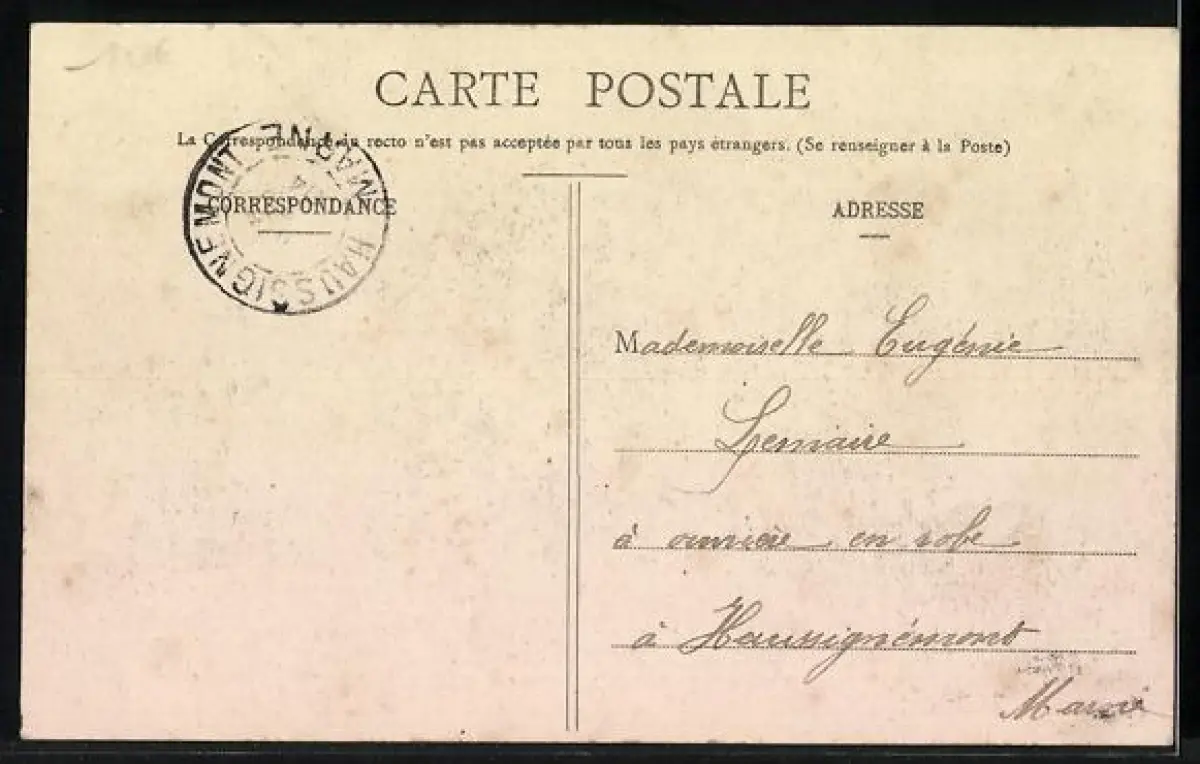 CARTE POSTALE
La Correspondance au recto n'est pas acceptée par tous les pays étrangers. (Se renseigner à la Poste)
HAUSSIGNEMONT MARNE
CORRESPONDANCE
ADRESSE
Mademoiselle Eugénie
Lemaire
à ouvrière en robe
à Haussignémont
Marne